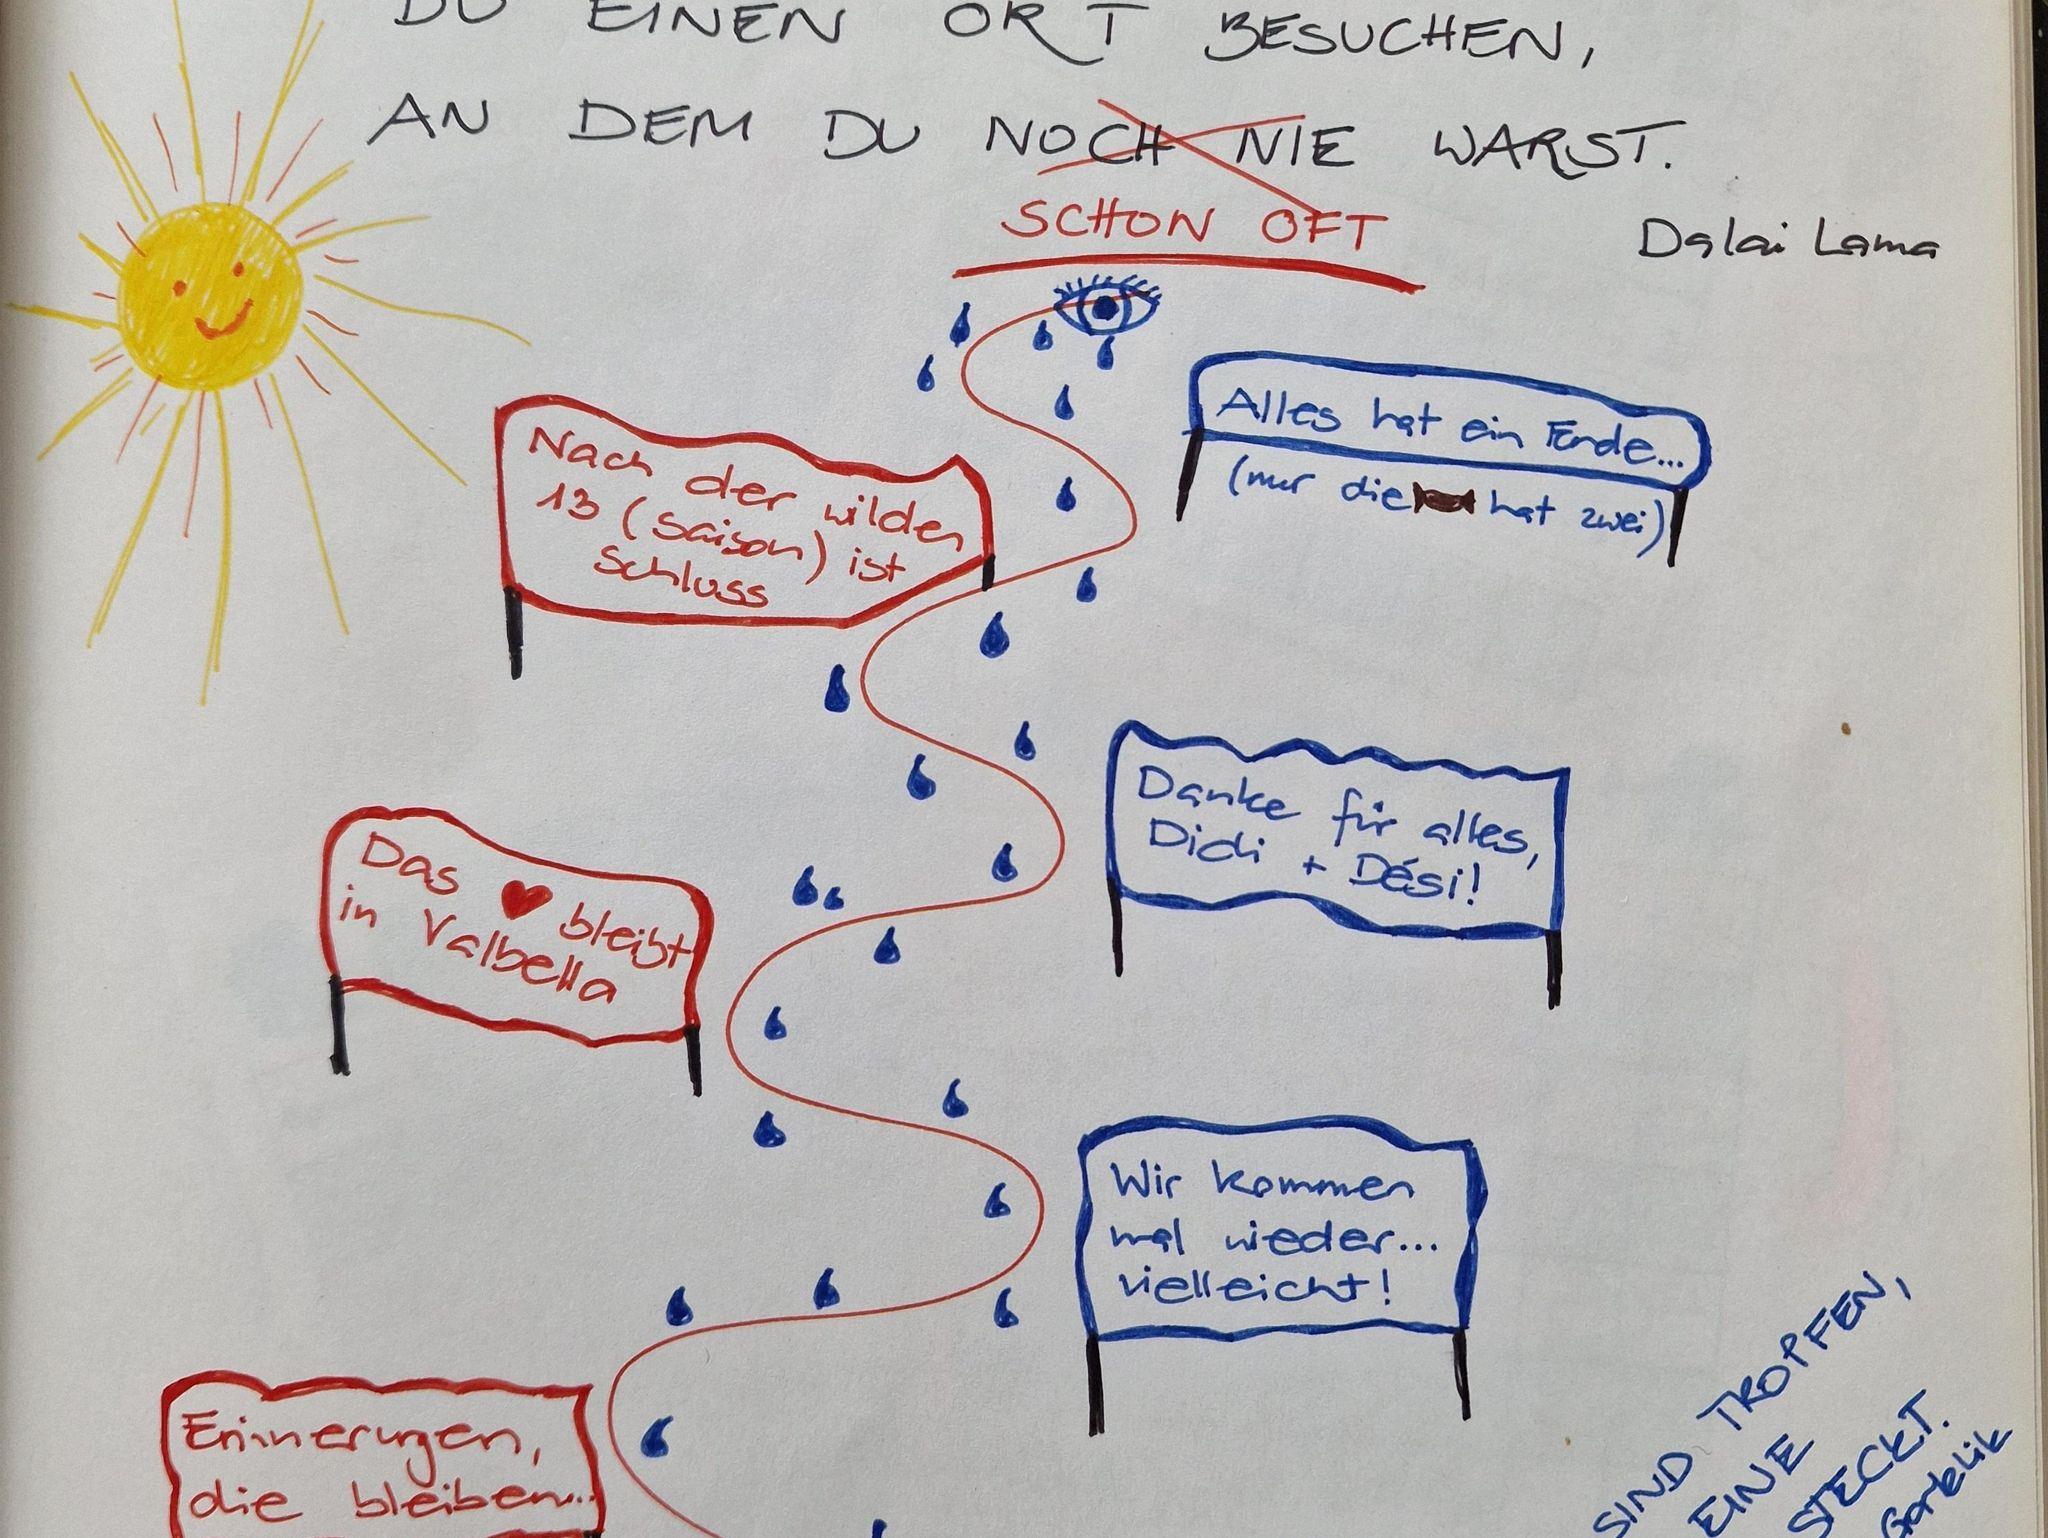 DU EINEN ORT BESUCHEN,
AN DEM DU NOCH NIE WARST.
SCHON OFT
Dalai Lama
Alles hat ein Ende...
(nur die hat zwei)
Nach der wilden
13 (Saison) ist
Schluss
Danke für alles,
Didi + Dési!
Das bleibt
in Valbella
Wir kommen
mal wieder...
vielleicht!
Erinnerungen,
die bleiben...
SIND TROPFEN,
EINE
STECKT.